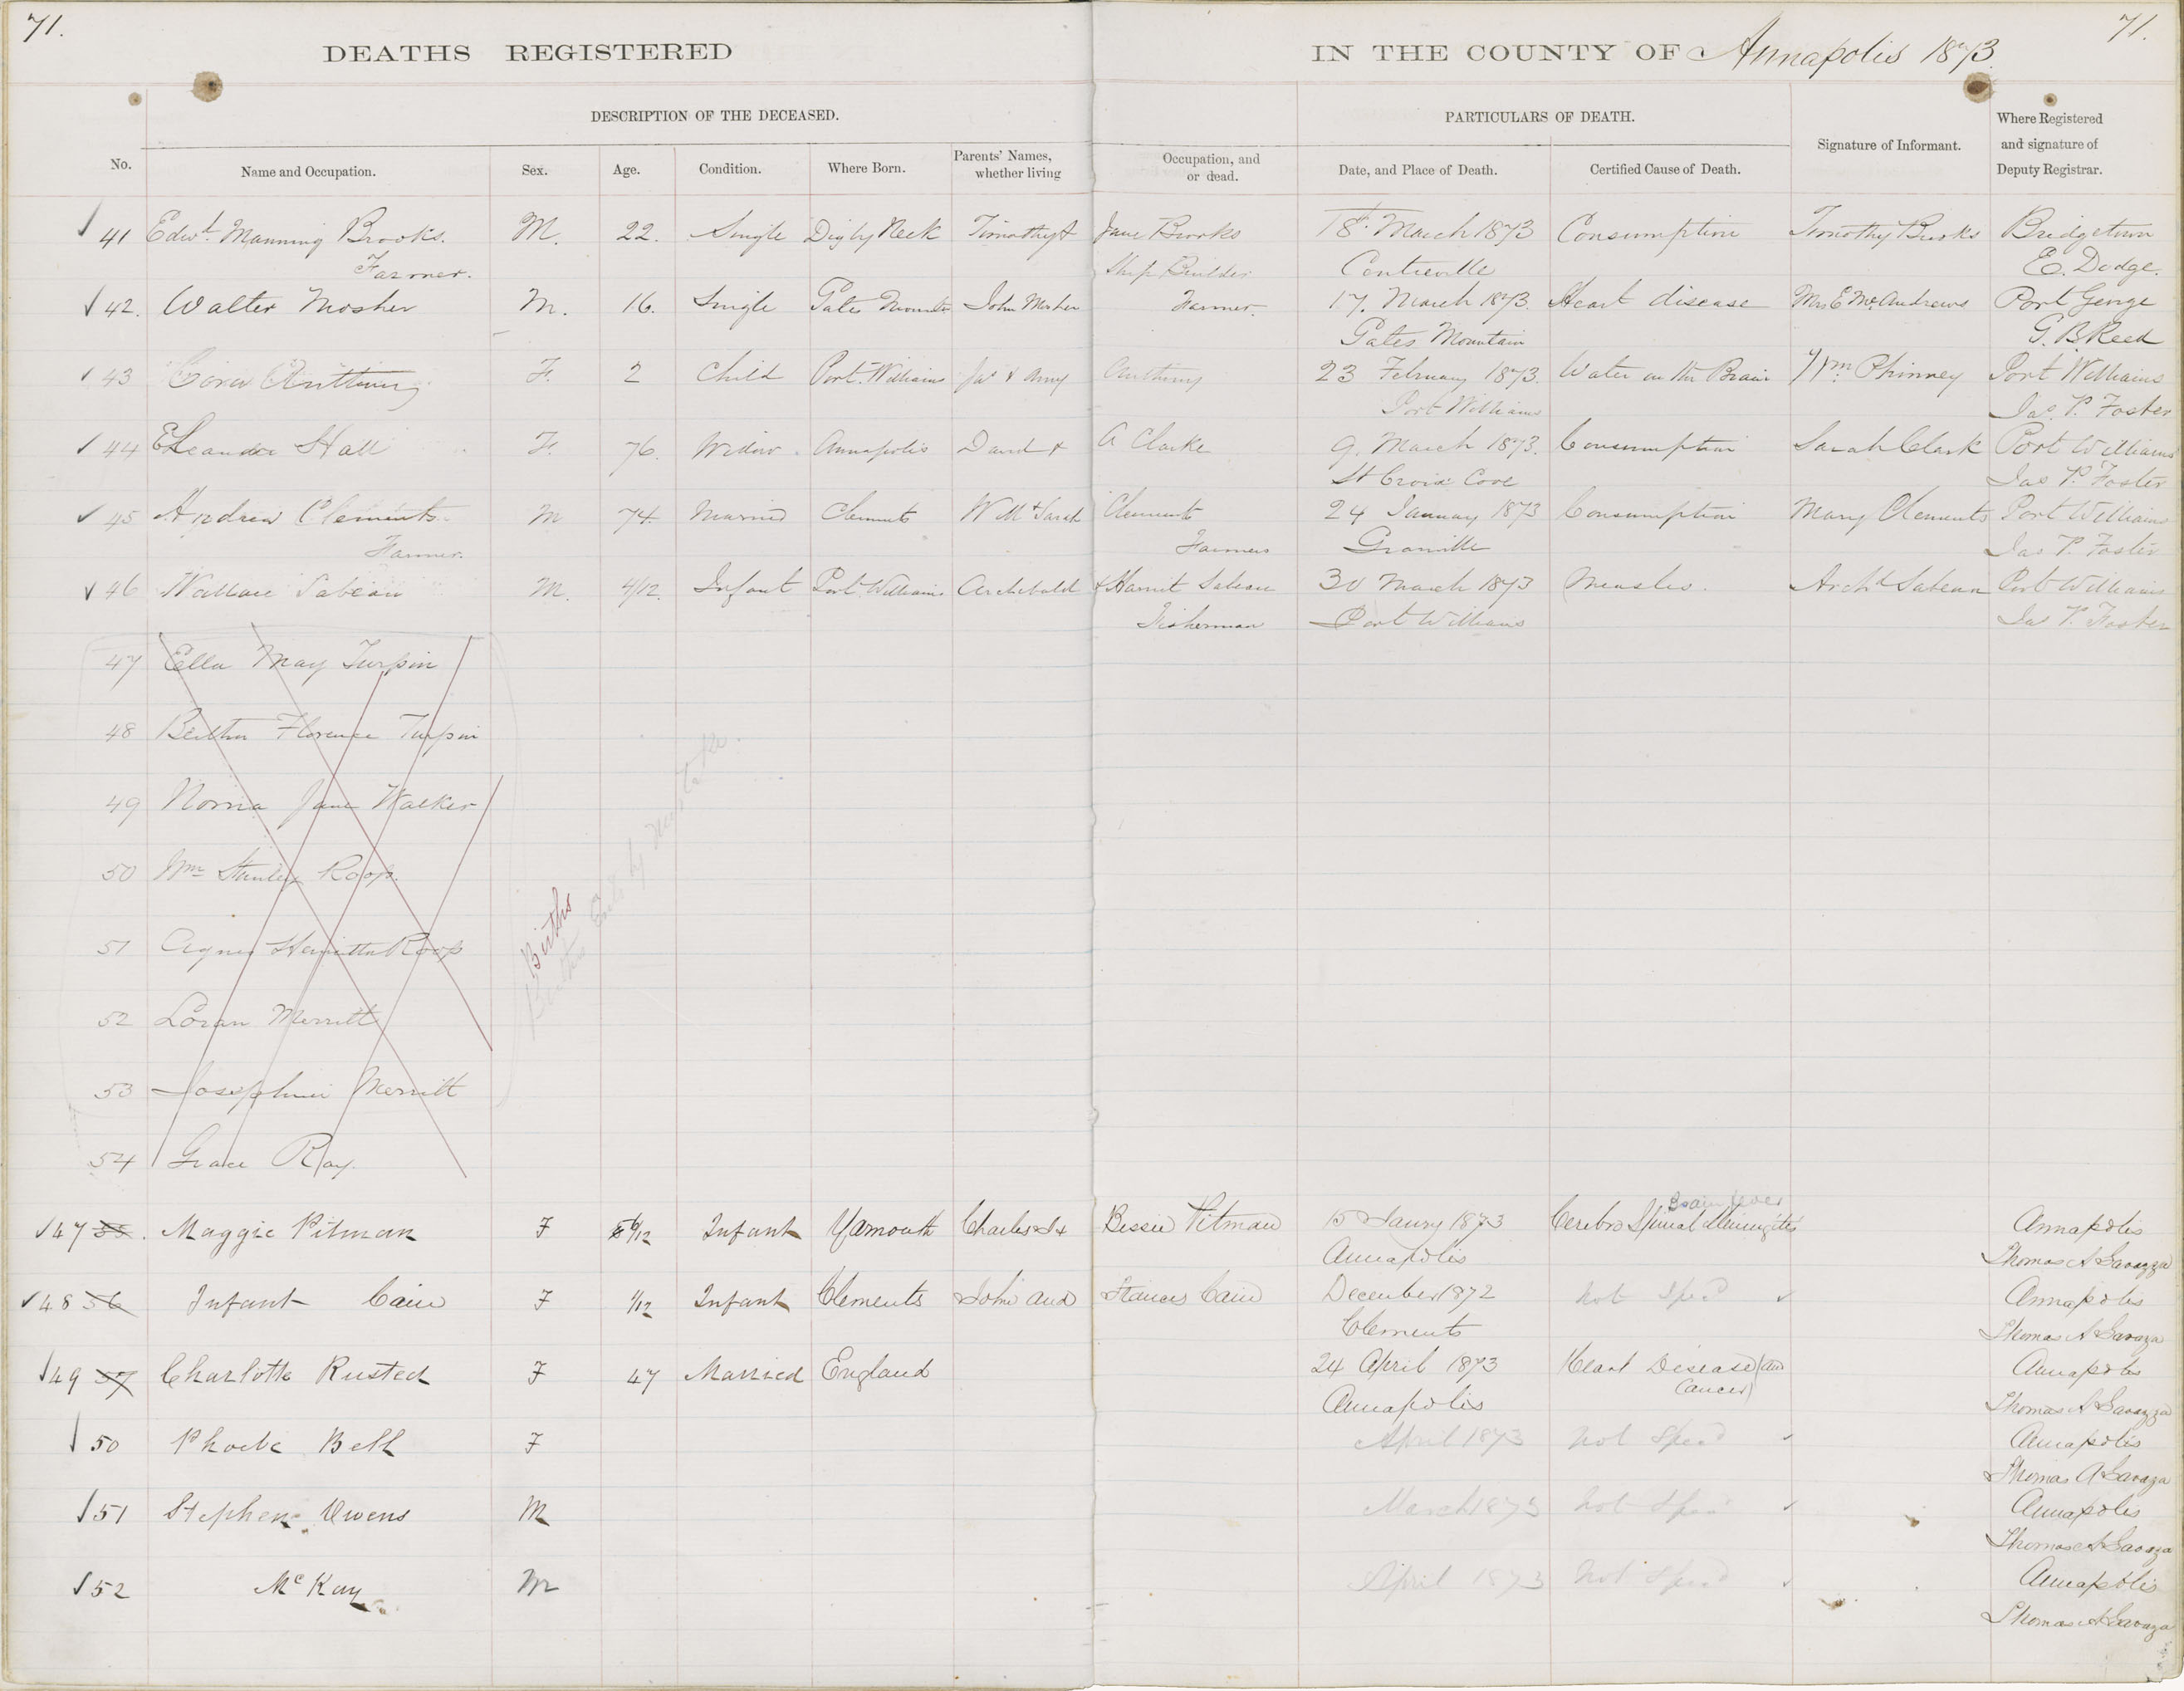 71.
71.
DEATHS REGISTERED IN THE COUNTY OF Annapolis 1873.
DESCRIPTION OF THE DECEASED. PARTICULARS OF DEATH.
No. Name and Occupation. Sex. Age. Condition. Where Born. Parents' Names, whether living Occupation, and or dead. Date, and Place of Death. Certified Cause of Death. Signature of Informant. Where Registered and signature of Deputy Registrar.
41 Edwd. Manning Brooks. M. 22. Single Digby Neck Timothy & Jane Brooks 18. March 1873 Consumption Timothy Brooks Bridgetown
Farmer. Ship Builder Centreville E. Dodge.
42. Walter Mosher M. 16. Single Gates Mountn John Mosher Farmer. 17. March 1873. Heart disease Mrs E McAndrews Port George
Gates Mountain G. B Reed
43 Cora Anthony F. 2 Child Port Williams Jas & Amy Anthony 23 February 1873. Water on the Brain Wm Phinney Port Williams
Port Williams Jas. P. Foster
44 Hall F. 76. Widow. Annapolis David & A Clarke 9. March 1873. Consumption Sarah Clark Port Williams
St Croix Cove Jas P. Foster
45 Andrew Clements. M 74. Married Clements Will & Sarah Clements 24 January 1873 Consumption Mary Clements Port Williams
Farmer. Farmers Granville Jas P. Foster
46 Wallace Sabean M. 4/12. Infant Port Williams Archibald & Harriet Sabean 30 March 1873 Measles. Archd Sabean Port Williams
Fisherman Port Williams Jas P. Foster
47 Ella May Turpin
48 Bertha Florence Turpin
49 Norma Jane Walker
50 Wm Stanley Roop.
Births
Births Ent. by Mistake.
51 Agnes Henrietta Roop
52 Loran Merritt
53 Josephine Merritt
54 Grace Ray.
Brain fever
47 55. Maggie Pitman F 8/12 Infant Yarmouth Charles & Bessie Pitman 15 Janry 1873 Cerebro Spinal Meningitis Annapolis
Annapolis Thomas A Gavaza
48 56 Infant Cain F 1/12 Infant Clements John and Frances Cain December 1872 Not Specd Annapolis
Clements Thomas A Gavaza
49 57 Charlotte Rusted F 47 Married England 24 April 1873 Heart Disease (and Cancer) Annapolis
Annapolis Thomas A Gavaza
50 Phoebe Bell F April 1873 Not Specd Annapolis
Thomas A Gavaza
51 Stephen Owens M March 1873 Not Specd Annapolis
Thomas A Gavaza
52 McKay M April 1873 Not Specd Annapolis
Thomas A Gavaza